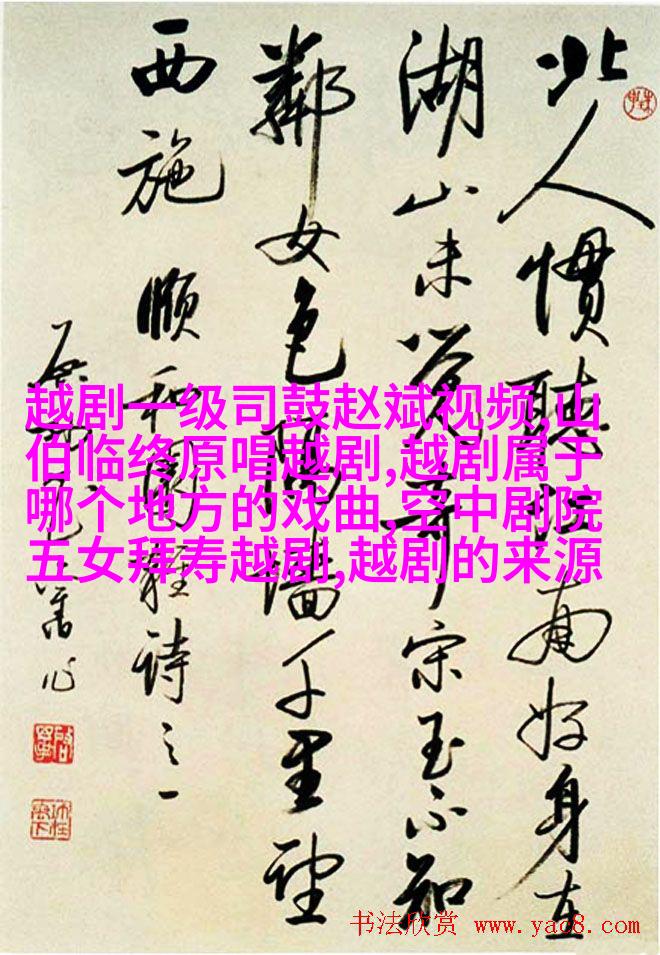 北人慣聽江南好身在
湖山未覺奇宋玉不知
鄰女色隔墻千里望
西施 頤和園雜詩之一
舊作
越剧一级司鼓赵斌视频,山
伯临终原唱越剧,越剧属于
哪个地方的戏曲,空中剧院
五女拜寿越剧,越剧的来源
书法欣赏 www.yac8.com